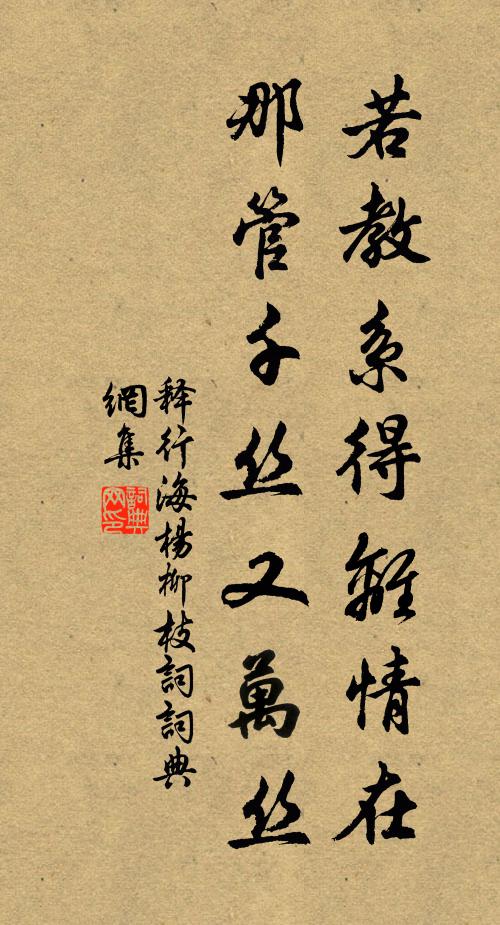 若教系得離情在
那管千丝又萬丝
释行海楊柳枝詞詞典
網集
詞典网印